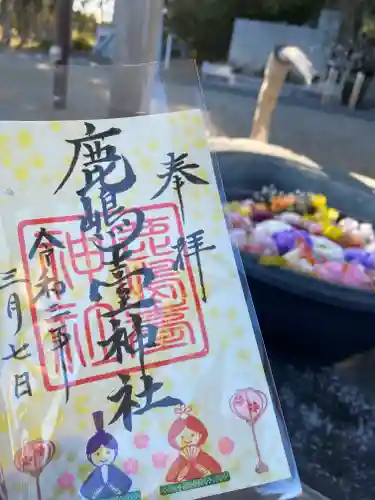 奉拝
鹿嶋臺神社
鹿嶋臺
神社
令和二年
三月七日